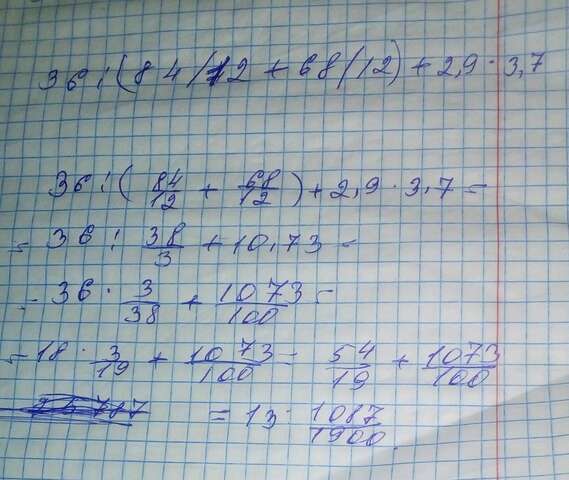 36 : (84/12 + 68/12) + 2,9 · 3,7
36 : (84/12 + 68/12) + 2,9 · 3,7 =
= 36 : 38/3 + 10,73 =
= 36 · 3/38 + 1073/100 =
= 18 · 3/19 + 1073/100 = 54/19 + 1073/100
= 13 1087/1900